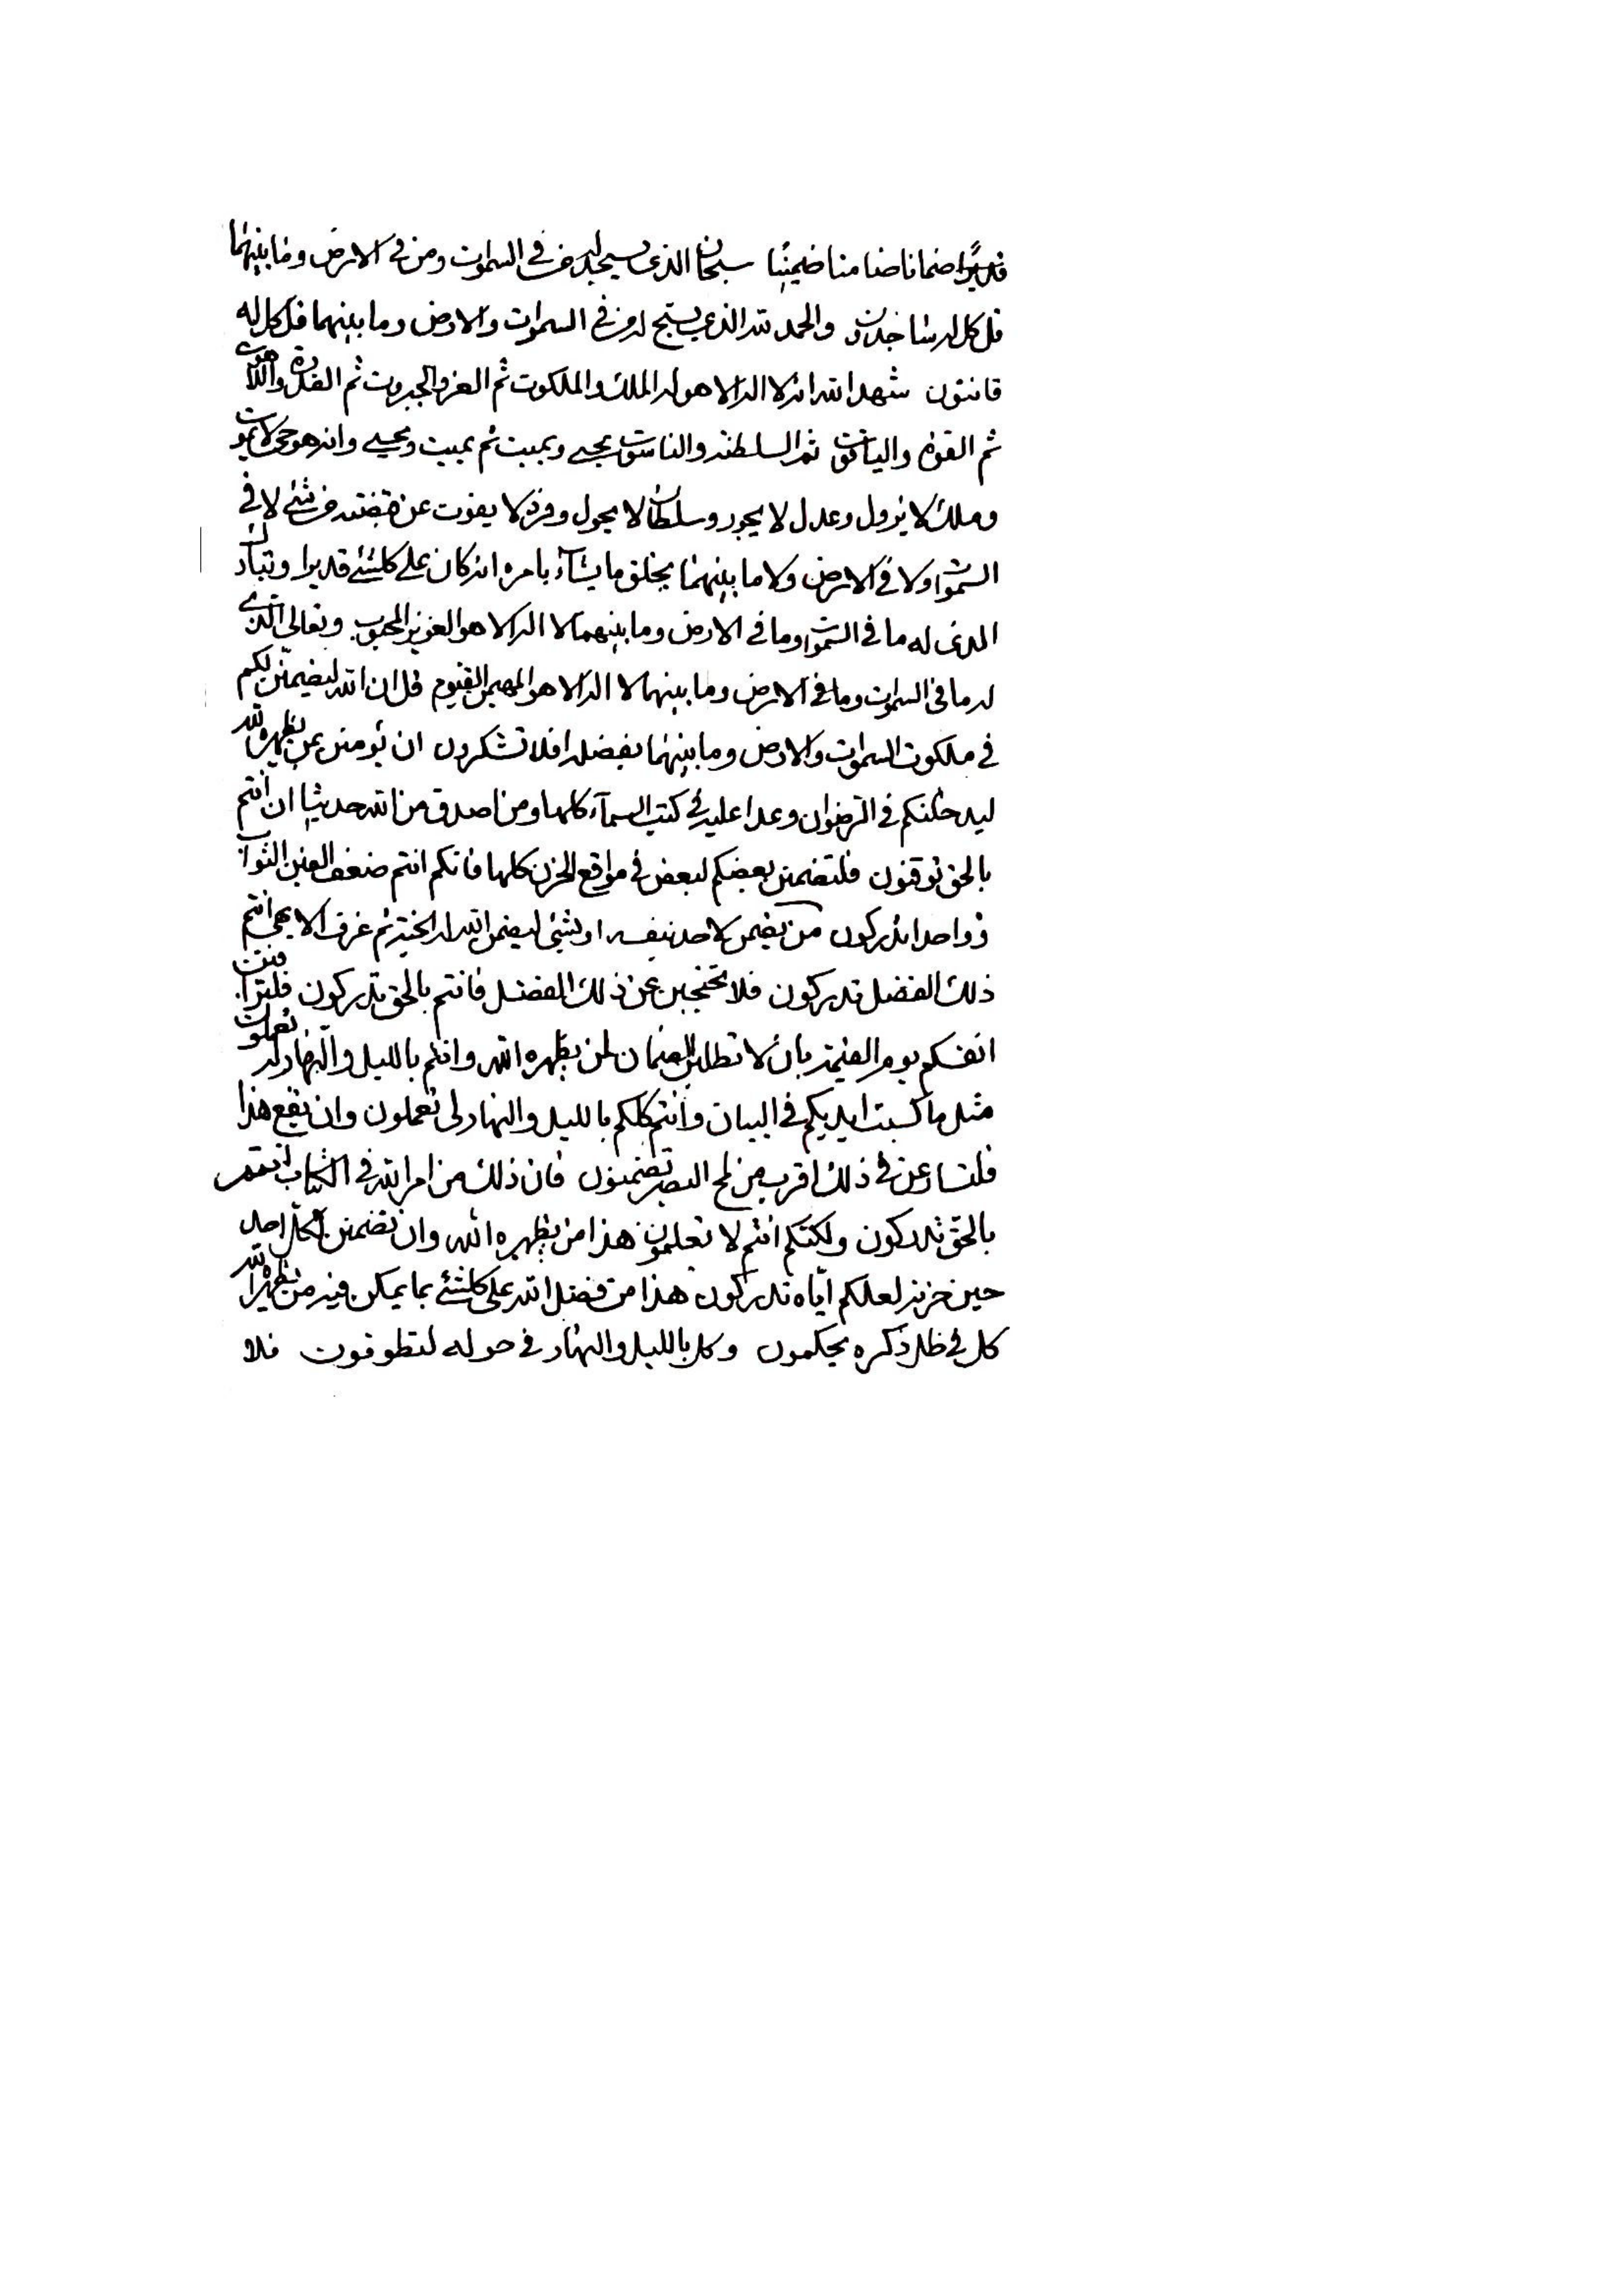 قديرا ضمانا ضامنا ضمينا سبحان الذى يسجد له من فى السموات ومن فى الارض وما بينهما
قل كل له ساجدون والحمد لله الذى يسبح له من فى السموات والارض وما بينهما قل كل له
قانتون شهد الله انه لا اله الا هو له الملك والملكوت ثم العز والجبروت ثم القدرة واللاهوت
ثم القوة والياقوت ثم السلطنة والناسوت يحيى ويميت ثم يميت ويحيى وانه هو حى لا يموت
وملك لا يزول وعدل لا يجور وسلطان لا يحول وفرد لا يفوت عن قبضته من شئ لا فى
السموات ولا فى الارض ولا ما بينهما يخلق ما يشآء بامره انه كان على كلشئ قديرا وتبارك
الذى له ما فى السموات وما فى الارض وما بينهما لا اله الا هو العزيز المحبوب وتعالى الذى
له ما فى السموات وما فى الارض وما بينهما لا اله الا هو المهيمن القيوم قل ان الله ليضمنن لكم
فى ملكوت السموات والارض وما بينهما بفضله افلا تشكرون ان تؤمنن بمن يظهره الله
ليدخلنكم فى الرضوان وعدا عليه فى كتب السمآء كلها ومن اصدق من الله حديثا ان انتم
بالحق توقنون فلتضمنن بعضكم لبعض فى مواقع الحزن كلها فانكم انتم ضعف الفين الثواب
فى واحد لتدركون من يضمن لاحد نفسه او لشئ ليضمن الله له الجنة ثم غرف الابهى انتم
ذلك الفضل تدركون فلا تحتجبن عن ذلك الفضل فانتم بالحق تدركون فلتراقبن
انفسكم يوم القيمة بان لا تطلبن الضمان لمن يظهره الله وانتم بالليل والنهار له تعملون
مثل ما كسبت ايديكم فى البيان وانتم كلكم بالليل والنهار لى تعملون وان يقع هذا
فلتسارعن فى ذلك اقرب من لمح البصر تضمنون فان ذلك من امر الله فى الكتاب انتم
بالحق تدركون ولكنكم انتم لا تعلمون هذا من يظهره الله وان تضمنن لكل احد
حين حزنه لعلكم اياه تدركون هذا من فضل الله على كلشئ بما يمكن فيه من يظهره الله
كل فى ظل ذكره يحكمون وكل بالليل والنهار فى حوله لتطوفون فلا